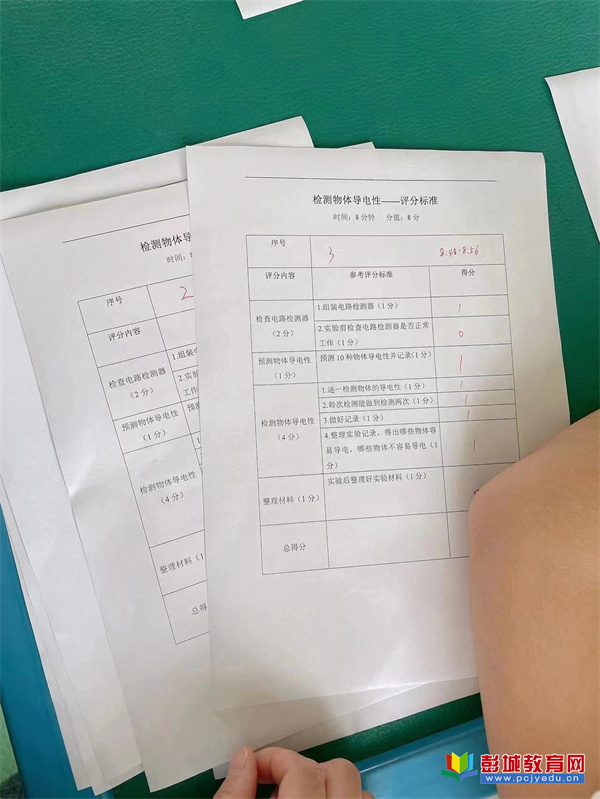 检测物体导电性——评分标准
时间：8分钟 分值：8分
序号 3 8:48-8:56
评分内容 参考评分标准 得分
检查电路检测器（2分）
1.组装电路检测器（1分） 1
2.实验前检查电路检测器是否正常
工作（1分） 0
预测物体导电性（1分）
预测10种物体导电性并记录(1分) 1
检测物体导电性（4分）
1.逐一检测物体的导电性（1分） 1
2.每次检测能做到检测两次（1分） 1
3.做好记录（1分） 1
4.整理实验记录，得出哪些物体容
易导电，哪些物体不容易导电（1
分） 1
整理材料（1分）
实验后整理好实验材料（1分）
总得分
检测物体导
时间：
序号 2
评分内容
检查电路检测器
（2分）
1.组装
2.实验
工作（
预测物体导电性
（1分）
预测
检测物体导电性
（4分）
整理材料（1
总得
彭城教育网
www.pcjyedu.cn